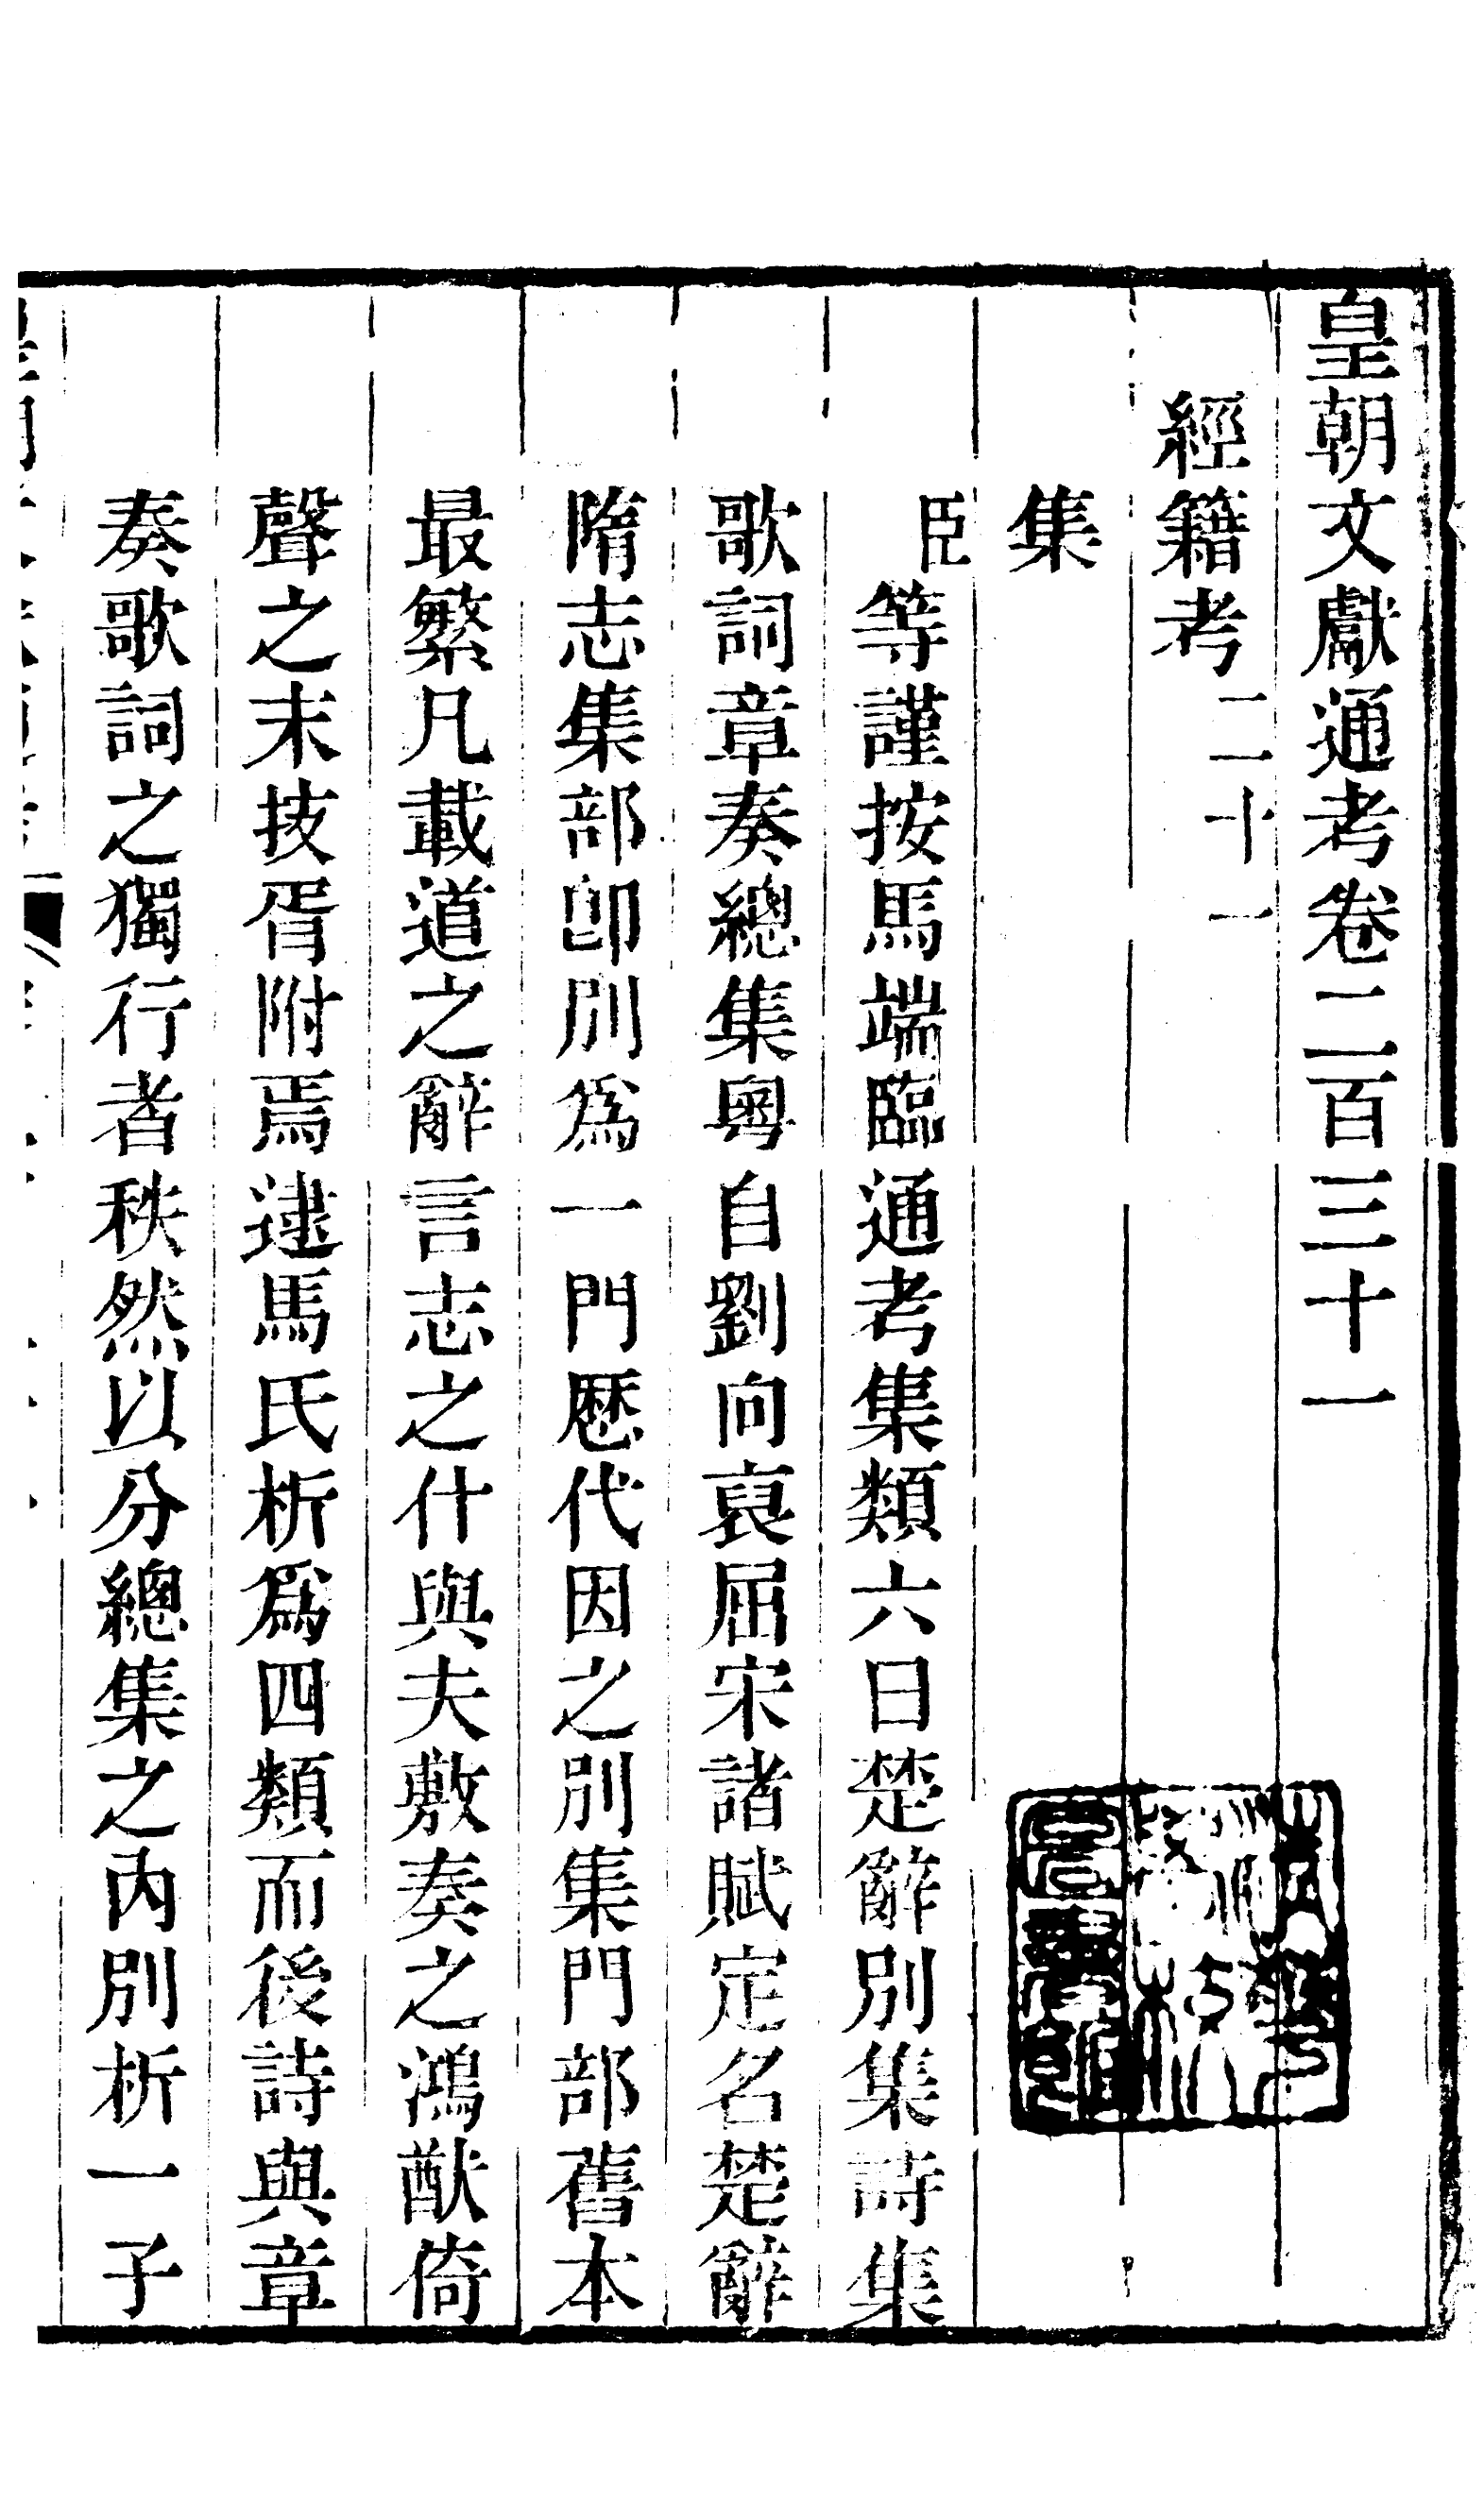 皇朝文獻通考卷二百三十一
經籍考二十一
集
臣等謹按馬端臨通考集類六曰楚辭別集詩集
歌詞章奏總集粤自劉向裒屈宋諸賦定名楚辭
隋志集部卽別爲一門歷代因之別集門部舊本
最繁凡載道之辭言志之什與夫敷奏之鴻猷倚
聲之末技胥附焉逮馬氏析爲四類而後詩與章
奏歌詞之獨行者秩然以分總集之內別析一子